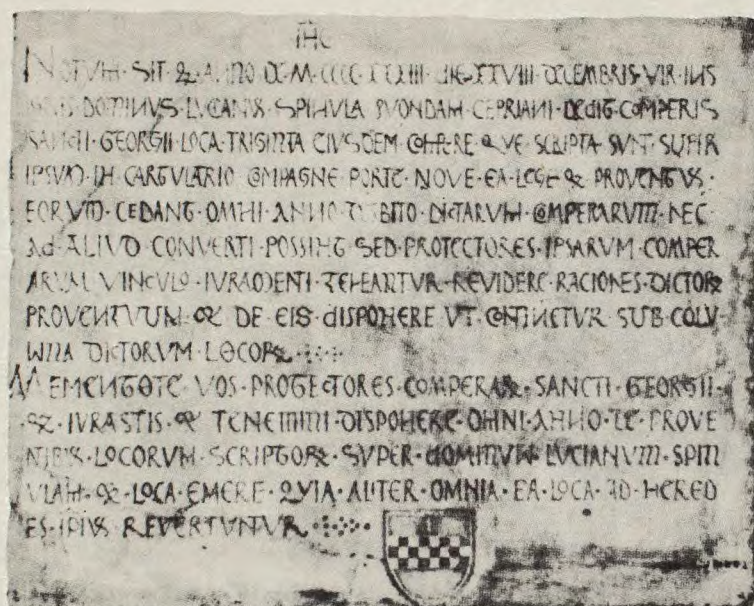 IHC
NOTVM · SIT · Q · ANNO · DE · M · CCCC · XXIIII · DIE · XXVIII · DECEMBRIS · VIR · INS
DOMINVS · LVCIANVS · SPINVLA · QVONDAM · CEPRIANI · DEDIT · COMPERIS
SANCTI · GEORGII · LOCA · TRIGINTA · EIVSDEM · COMPERE · QVE · SCRIPTA · SVNT · SVPER
IPSVM · IN · CARTVLARIO · COMPAGNE · PORTE · NOVE · EA · LEGE · Q · PROVENTVS ·
EORVM · CEDANT · OMNI · ANNO · DEBITO · DICTARVM · COMPERARVM · NEC
AD · ALIVD · CONVERTI · POSSINT · SED · PROTECTORES · IPSARVM · COMPER
ARVM · VINCVLO · IVRAMENTI · TENEANTVR · REVIDERE · RACIONES · DICTOR
PROVENTVVM · ET · DE · EIS · DISPONERE · VT · CONTINETVR · SVB · COLV
MNA · DICTORVM · LOCOR
MEMENTOTE · VOS · PROTECTORES · COMPERAR · SANCTI · GEORGII ·
· Q · IVRASTIS · ET · TENEMINI · DISPONERE · OMNI · ANNO · DE · PROVE
NTIBVS · LOCORVM · SCRIPTOR · SVPER · DOMINVM · LVCIANVM · SPIN
VLAM · ET · LOCA · EMERE · QVIA · ALITER · OMNIA · EA · LOCA · AD · HERED
ES · IPIVS · REVERTVNTVR